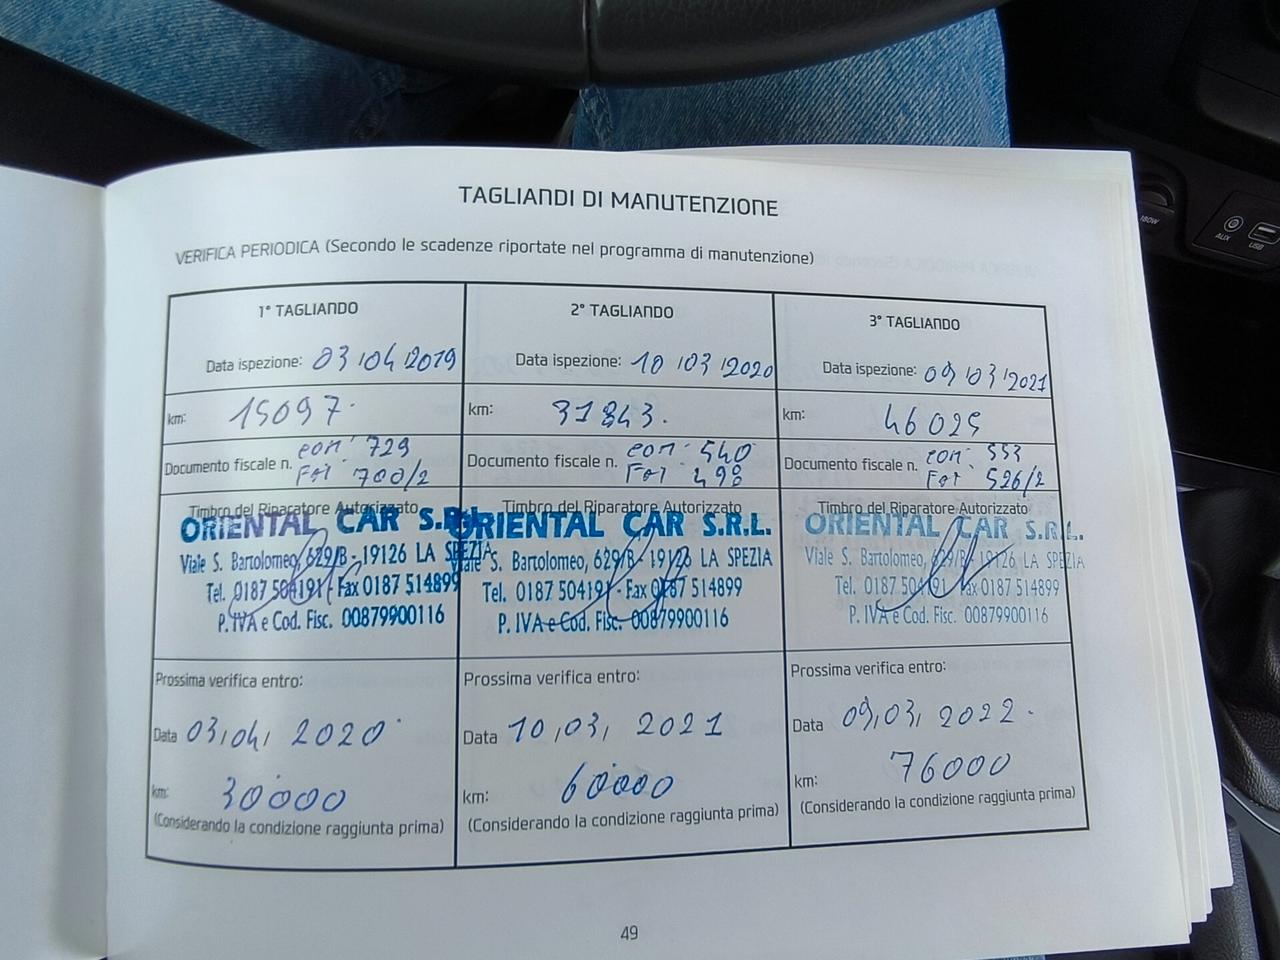 TAGLIANDI DI MANUTENZIONE
VERIFICA PERIODICA (Secondo le scadenze riportate nel programma di manutenzione)
1° TAGLIANDO
Data ispezione: 03/04/2019
km: 15097
Documento fiscale n. com. 729
Fat 700/2
Timbro del Riparatore Autorizzato
ORIENTAL CAR S.R.L.
Viale S. Bartolomeo, 629/B - 19126 LA SPEZIA
Tel. 0187 504191 - Fax 0187 514899
P. IVA e Cod. Fisc. 00879900116
Prossima verifica entro:
Data 03,04, 2020
km: 30'000
(Considerando la condizione raggiunta prima)
2° TAGLIANDO
Data ispezione: 10/03/2020
km: 31843.
Documento fiscale n. com. 540
Fat 498
Timbro del Riparatore Autorizzato
ORIENTAL CAR S.R.L.
Viale S. Bartolomeo, 629/B - 19126 LA SPEZIA
Tel. 0187 504191 - Fax 0187 514899
P. IVA e Cod. Fisc. 00879900116
Prossima verifica entro:
Data 10,03, 2021
km: 60'000
(Considerando la condizione raggiunta prima)
3° TAGLIANDO
Data ispezione: 09/03/2021
km: 46025
Documento fiscale n. com. 553
Fat 526/2
Timbro del Riparatore Autorizzato
ORIENTAL CAR S.R.L.
Viale S. Bartolomeo, 629/B - 19126 LA SPEZIA
Tel. 0187 504191 - Fax 0187 514899
P. IVA e Cod. Fisc. 00879900116
Prossima verifica entro:
Data 09,03, 2022.
km: 76000
(Considerando la condizione raggiunta prima)
49
180W
AUX
USB